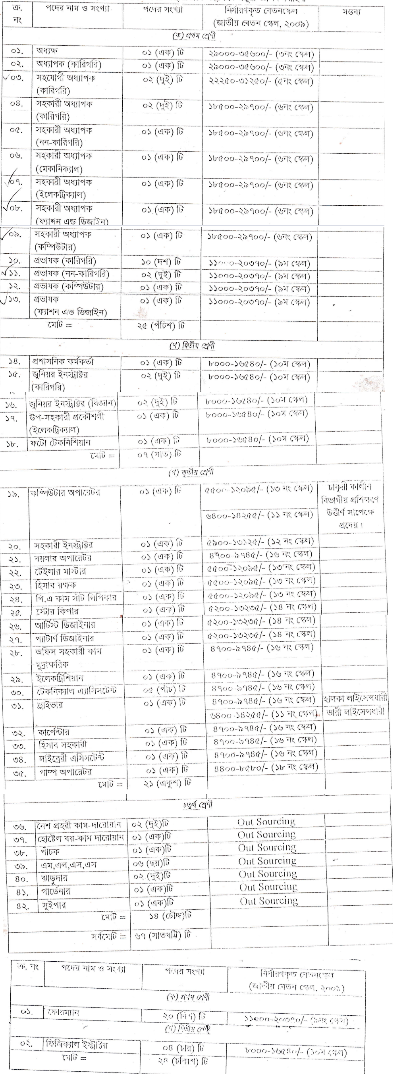 ক্র. নং পদের নাম ও সংখ্যা পদের সংখ্যা নির্ধারণকৃত বেতনস্কেল (জাতীয় বেতন স্কেল, ২০০৯) মন্তব্য
(ক) প্রথম শ্রেণী
০১. অধ্যক্ষ ০১ (এক) টি ২৯০০০-৩৫৬০০/- (৩নং স্কেল)
০২. অধ্যাপক (কারিগরি) ০১ (এক) টি ২৯০০০-৩৫৬০০/- (৩নং স্কেল)
০৩. সহযোগী অধ্যাপক (কারিগরি) ০২ (দুই) টি ২২২৫০-৩১২৫০/- (৫নং স্কেল)
০৪. সহকারী অধ্যাপক (কারিগরি) ০২ (দুই) টি ১৮৫০০-২৯৭০০/- (৬নং স্কেল)
০৫. সহকারী অধ্যাপক (নন-কারিগরি) ০১ (এক) টি ১৮৫০০-২৯৭০০/- (৬নং স্কেল)
০৬. সহকারী অধ্যাপক (মেকানিক্যাল) ০১ (এক) টি ১৮৫০০-২৯৭০০/- (৬নং স্কেল)
০৭. সহকারী অধ্যাপক (ইলেকট্রিক্যাল) ০১ (এক) টি ১৮৫০০-২৯৭০০/- (৬নং স্কেল)
০৮. সহকারী অধ্যাপক (ফ্যাশন এন্ড ডিজাইন) ০১ (এক) টি ১৮৫০০-২৯৭০০/- (৬নং স্কেল)
০৯. সহকারী অধ্যাপক (কম্পিউটার) ০১ (এক) টি ১৮৫০০-২৯৭০০/- (৬নং স্কেল)
১০. প্রভাষক (কারিগরি) ১০ (দশ) টি ১১০০০-২০৩৭০/- (৯ম স্কেল)
১১. প্রভাষক (নন-কারিগরি) ০২ (দুই) টি ১১০০০-২০৩৭০/- (৯ম স্কেল)
১২. প্রভাষক (কম্পিউটার) ০১ (এক) টি ১১০০০-২০৩৭০/- (৯ম স্কেল)
১৩. প্রভাষক (ফ্যাশন এন্ড ডিজাইন) ০১ (এক) টি ১১০০০-২০৩৭০/- (৯ম স্কেল)
মোট = ২৫ (পঁচিশ) টি
(খ) দ্বিতীয় শ্রেণী
১৪. প্রশাসনিক কর্মকর্তা ০১ (এক) টি ৮০০০-১৬৫৪০/- (১০ম স্কেল)
১৫. জুনিয়র ইনস্ট্রাক্টর (কারিগরি) ০২ (দুই) টি ৮০০০-১৬৫৪০/- (১০ম স্কেল)
১৬. জুনিয়র ইনস্ট্রাক্টর (বিজ্ঞান) ০২ (দুই) টি ৮০০০-১৬৫৪০/- (১০ম স্কেল)
১৭. উপ-সহকারী প্রকৌশলী (ইলেকট্রিক্যাল) ০১ (এক) টি ৮০০০-১৬৫৪০/- (১০ম স্কেল)
১৮. ফটো টেকনিশিয়ান ০১ (এক) টি ৮০০০-১৬৫৪০/- (১০ম স্কেল)
মোট = ০৭ (সাত) টি
(গ) তৃতীয় শ্রেণী
১৯. কম্পিউটার অপারেটর ০১ (এক) টি ৫৫০০-১২০৯৫/- (১৩ নং স্কেল) চাকুরী কালীন বিভাগীয় প্রশিক্ষণে
৬৪০০-১৪২৫৫/- (১১ নং স্কেল) উত্তীর্ণ সাপেক্ষে প্রদেয়।
২০. সহকারী ইনস্ট্রাক্টর ০১ (এক) টি ৫৯০০-১৩১২৫/- (১২ নং স্কেল)
২১. বয়লার অপারেটর ০১ (এক) টি ৪৭০০-৯৭৪৫/- (১৬ নং স্কেল)
২২. টেইলার মাস্টার ০১ (এক) টি ৫৫০০-১২০৯৫/- (১৩ নং স্কেল)
২৩. হিসাব রক্ষক ০১ (এক) টি ৫৫০০-১২০৯৫/- (১৩ নং স্কেল)
২৪. পি.এ কাম সাঁট লিপিকার ০১ (এক) টি ৫৫০০-১২০৯৫/- (১৩ নং স্কেল)
২৫. স্টোর কিপার ০১ (এক) টি ৫২০০-১১২৩৫/- (১৪ নং স্কেল)
২৬. আর্টিস্ট ডিজাইনার ০১ (এক) টি ৫২০০-১১২৩৫/- (১৪ নং স্কেল)
২৭. প্যাটার্ণ ডিজাইনার ০১ (এক) টি ৫২০০-১১২৩৫/- (১৪ নং স্কেল)
২৮. অফিস সহকারী কাম মুদ্রাক্ষরিক ০১ (এক) টি ৪৭০০-৯৭৪৫/- (১৬ নং স্কেল)
২৯. ইলেকট্রিশিয়ান ০১ (এক) টি ৪৭০০-৯৭৪৫/- (১৬ নং স্কেল)
৩০. টেকনিক্যাল এ্যাসিসটেন্ট ০৫ (পাঁচ) টি ৪৭০০-৯৭৪৫/- (১৬ নং স্কেল)
৩১. ড্রাইভার ০১ (এক) টি ৪৭০০-৯৭৪৫/- (১৬ নং স্কেল) হালকা লাইসেন্সধারী
৬৪০০-১৪২৫৫/- (১১ নং স্কেল) ভারী লাইসেন্সধারী
৩২. কার্পেন্টার ০১ (এক) টি ৪৭০০-৯৭৪৫/- (১৬ নং স্কেল)
৩৩. হিসাব সহকারী ০১ (এক) টি ৪৭০০-৯৭৪৫/- (১৬ নং স্কেল)
৩৪. লাইব্রেরী এসিসটেন্ট ০১ (এক) টি ৪৭০০-৯৭৪৫/- (১৬ নং স্কেল)
৩৫. পাম্প অপারেটর ০১ (এক) টি ৪৪০০-৮৫৮০/- (১৮ নং স্কেল)
মোট = ২১ (একুশ) টি
চতুর্থ শ্রেণী
৩৬. নৈশ প্রহরী কাম-দারোয়ান ০২ (দুই)টি Out Sourcing
৩৭. হোষ্টেল বয়-কাম দারোয়ান ০১ (এক)টি Out Sourcing
৩৮. পাঁচক ০১ (এক)টি Out Sourcing
৩৯. এম,এল,এস,এস ০৬ (ছয়)টি Out Sourcing
৪০. ঝাড়ুদার ০২ (দুই)টি Out Sourcing
৪১. গার্ডেনার ০১ (এক)টি Out Sourcing
৪২. সুইপার ০১ (এক)টি Out Sourcing
মোট = ১৪ (চৌদ্দ)টি
সর্বমোট = ৬৭ (সাতষট্টি) টি
ক্র. নং পদের নাম ও সংখ্যা পদের সংখ্যা নির্ধারণকৃত বেতনস্কেল (জাতীয় বেতন স্কেল, ২০০৯)
(ক) প্রথম শ্রেণী
০১. ফোরম্যান ২০ (বিশ) টি ১১০০০-২০৩৭০/- (৯নং স্কেল)
(খ) দ্বিতীয় শ্রেণী
০২. ফিজিক্যাল ইন্সট্রাক্টর ০৪ (চার) টি ৮০০০-১৬৫৪০/- (১০ম স্কেল)
মোট = ২৪ (চব্বিশ) টি